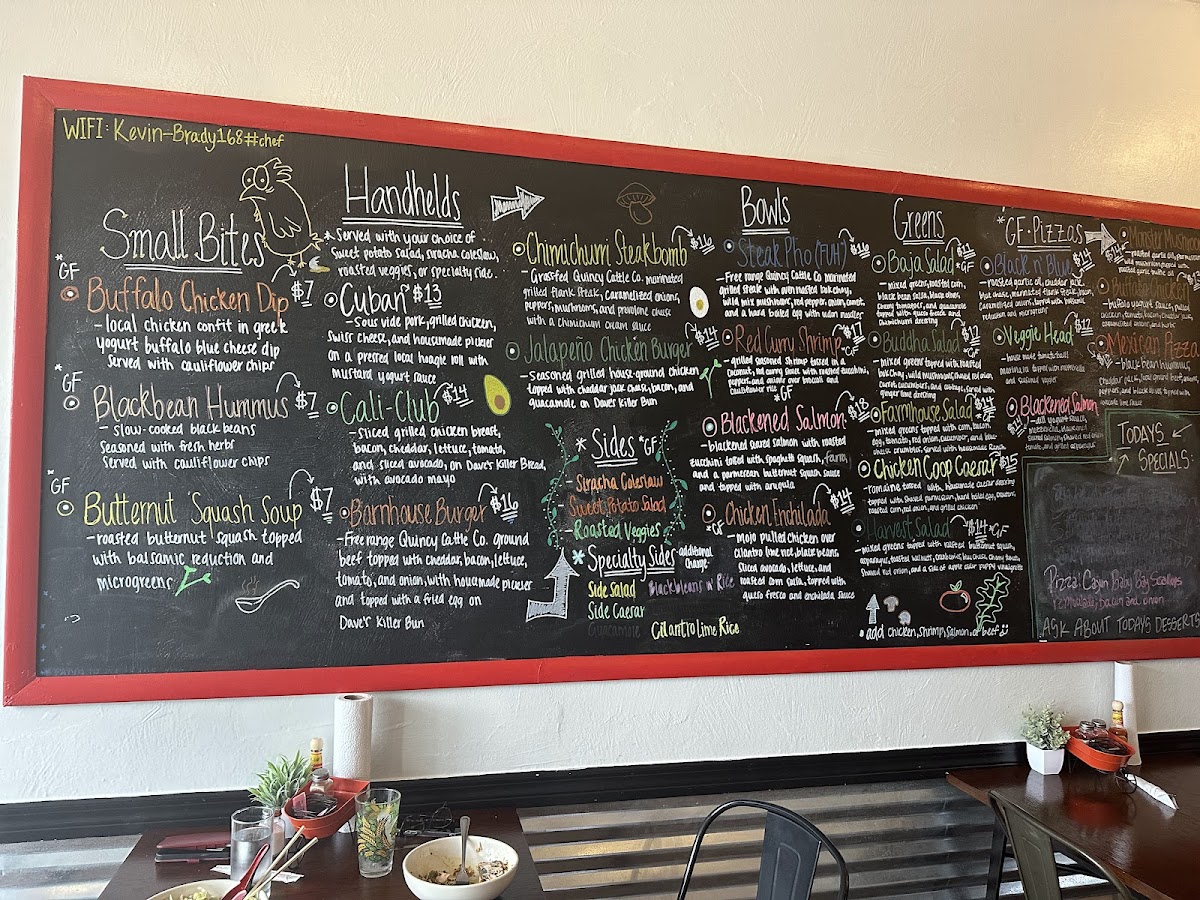 WIFI: Kevin-Brady168##chef
Small Bites
*GF
Buffalo Chicken Dip $7
- local chicken confit in greek
yogurt buffalo blue cheese dip
served with cauliflower chips
*GF
Blackbean Hummus $7
- slow-cooked black beans
seasoned with fresh herbs
served with cauliflower chips
*GF
Butternut Squash Soup $7
- roasted butternut squash topped
with balsamic reduction and
microgreens
Handhelds
* Served with your choice of
sweet potato salad, siracha coleslaw,
roasted veggies, or specialty side.
Cuban $13
- Sous vide pork, grilled chicken,
swiss cheese, and housmade pickles
on a pressed local hoagie roll with
mustard yogurt sauce
Cali-Club $14
- sliced grilled chicken breast,
bacon, cheddar, lettuce, tomato,
and sliced avocado, on Dave's Killer Bread,
with avocado mayo
Barnhouse Burger $16
- Free range Quincy Cattle Co. ground
beef topped with cheddar, bacon, lettuce,
tomato, and onion, with housmade pickles
and topped with a fried egg on
Dave's Killer Bun
Chimichurri Steakbomb $16
- Grassfed Quincy Cattle Co. marinated
grilled flank steak, caramelized onions,
peppers, mushrooms, and provlone cheese
with a chimichurri cream sauce
Jalapeño Chicken Burger $14
- Seasoned grilled house-ground chicken
topped with cheddar jack cheese, bacon, and
guacamole on Dave's Killer Bun
* Sides *GF
- Siracha Coleslaw
- Sweet Potato Salad
- Roasted Veggies
* Specialty Sides additional
charge
Side Salad
Blackbeans n' Rice
Side Caesar
Guacamole
Cilantro Lime Rice
Bowls
Steak Pho (FUH) $18
- Free range Quincy Cattle Co marinated
grilled steak with oven roasted bok choy,
wild mix mushrooms, red pepper, onion, carrot,
and a hard boiled egg with udon noodles
Red Curry Shrimp $17
*GF
- grilled seasoned shrimp tossed in a
coconut, red curry sauce with roasted zucchini,
peppers, and onions over broccoli and
cauliflower rice
*GF
Blackened Salmon $18
- blackened seared salmon with roasted
zucchini tossed with spaghetti squash, farro,
and a parmesean butternut squash sauce
and topped with arugula
*GF
Chicken Enchilada $14
- mojo pulled chicken over
cilantro lime rice, black beans,
sliced avocado, lettuce, and
roasted corn salsa, topped with
queso fresco and enchilada sauce
Greens
Baja Salad $11
*GF
- mixed greens, roasted corn,
black bean salsa, black olives,
cherry tomatoes, and guacamole
topped with queso fresco and
chimichurri dressing
Buddha Salad $12
*GF
- mixed greens topped with roasted
bok choy, wild mushrooms, shaved red onion,
carrot, cucumbers, and cabbage, served with
ginger lime dressing
Farmhouse Salad $14
*GF
- mixed greens topped with corn, bacon,
egg, tomato, red onion, cucumber, and blue
cheese crumbles, served with housemade ranch
Chicken Coop Caesar $15
- romaine tossed with housmade caesar dressing
topped with shaved parmesan, hard boiled egg, croutons,
roasted corn, red onion, and grilled chicken
Harvest Salad $14 *GF
- mixed greens topped with roasted butternut squash,
asparagus, toasted walnuts, cranberries, blue cheese, cherry tomato,
shaved red onion, and a side of apple cider poppy vinaigrette
* add chicken, shrimp, salmon, or beef
*GF - Pizzas
Black n' Blue $14
- roasted garlic oil, cheddar jack,
blue cheese, marinated flank steak,
caramelized onions, topped with balsamic
reduction and microgreens
Veggie Head $12
- house made tomato basil
marinara topped with mozzarella
and seasonal veggies
Blackened Salmon
Monster Mushroom
Buffalo Chicken
Mexican Pizza
- black bean hummus,
TODAYS
SPECIALS:
Pizza: Cajun Baby Bay Scallops
remoulade, bacon and onion
ASK ABOUT TODAYS DESSERTS